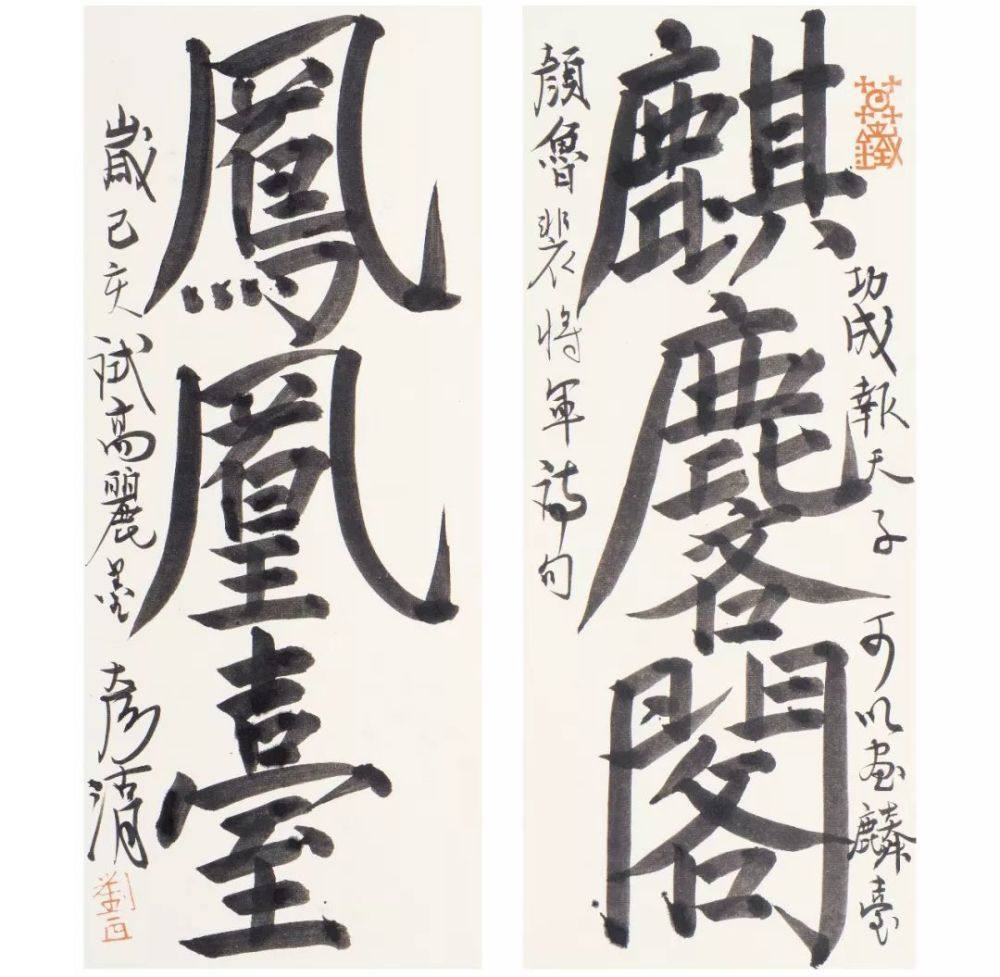 功成報天子 可以畫麟臺
麒麐閣
顏魯裴將軍詩句
鳳凰臺
歲己亥試高麗墨 彥湖
劉